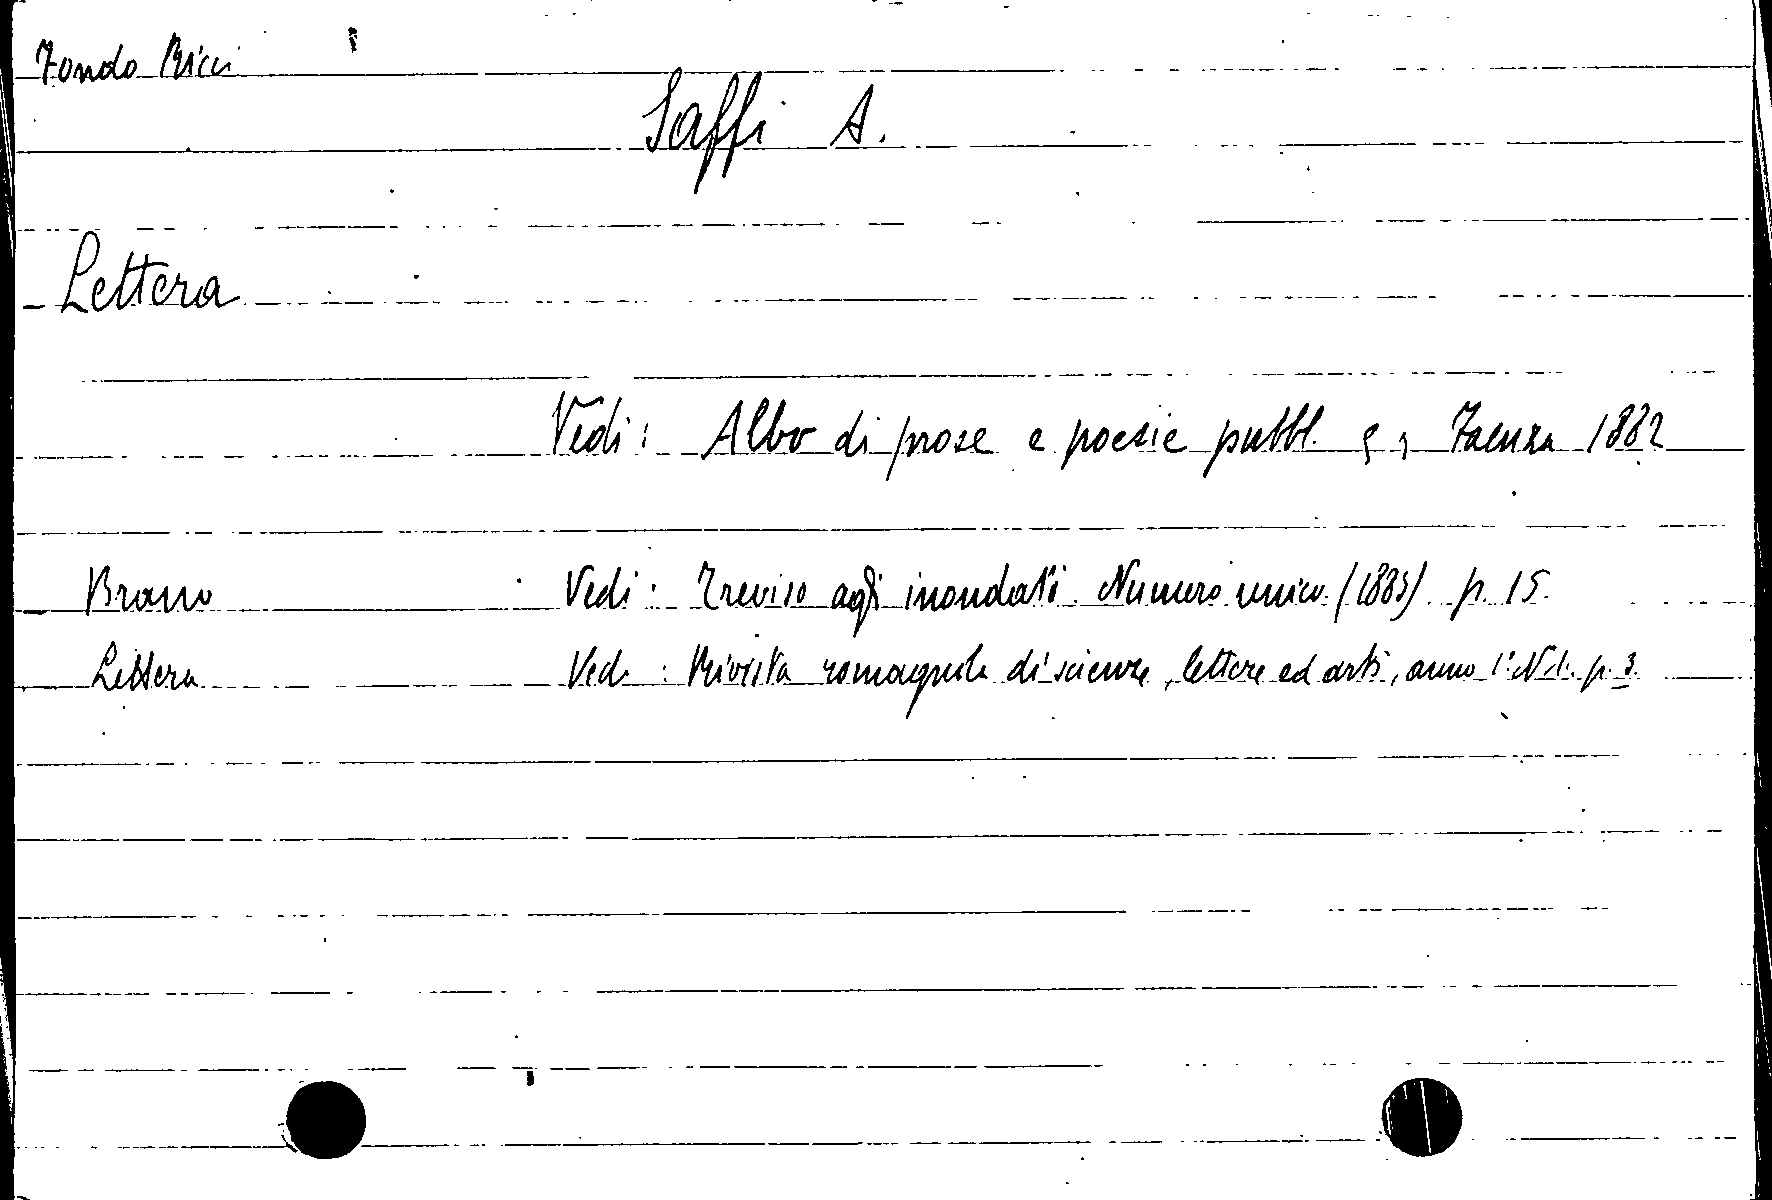 Fondo Ricci
Saffi A.
Lettera
Vedi: Albo di prose e poesie pubbl. Faenza 1882
Brano Vedi: Treviso agli inondati. Numero unico (1883) p. 15.
Lettera Vedi: Rivista romagnola di scienze, lettere ed arti, anno 1° N 1. p. 3.